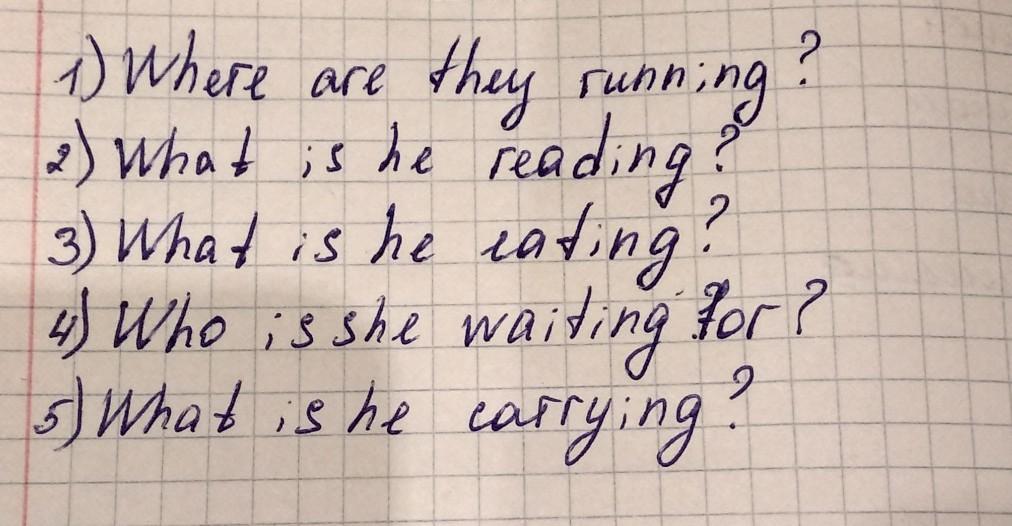 1) Where are they running?
2) What is he reading?
3) What is he eating?
4) Who is she waiting for?
5) What is he carrying?